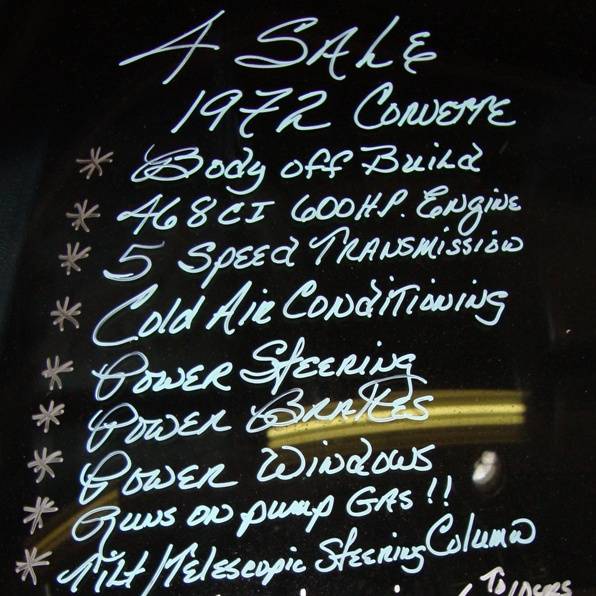 4 SALE
1972 CORVETTE
* Body off Build
* 468CI 600HP. Engine
* 5 Speed Transmission
* Cold Air Conditioning
* Power Steering
* Power Brakes
* Power Windows
* Runs on pump Gas!!
* Tilt/Telescopic Steering Column